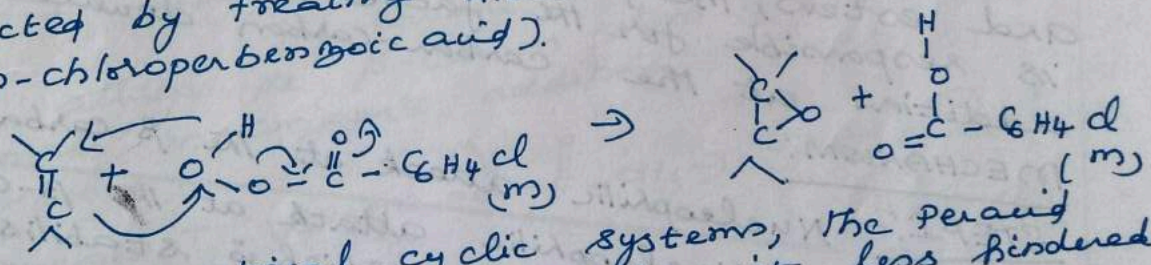 cted by treating
-chloroperbenzoic acid).
H
O
C
C
+
O
H
O
O
C
- C6H4 Cl
(m)
→
C
C
O
+
H
O
C
O
- C6H4 Cl
(m)
cyclic systems, the peracid
less hindered